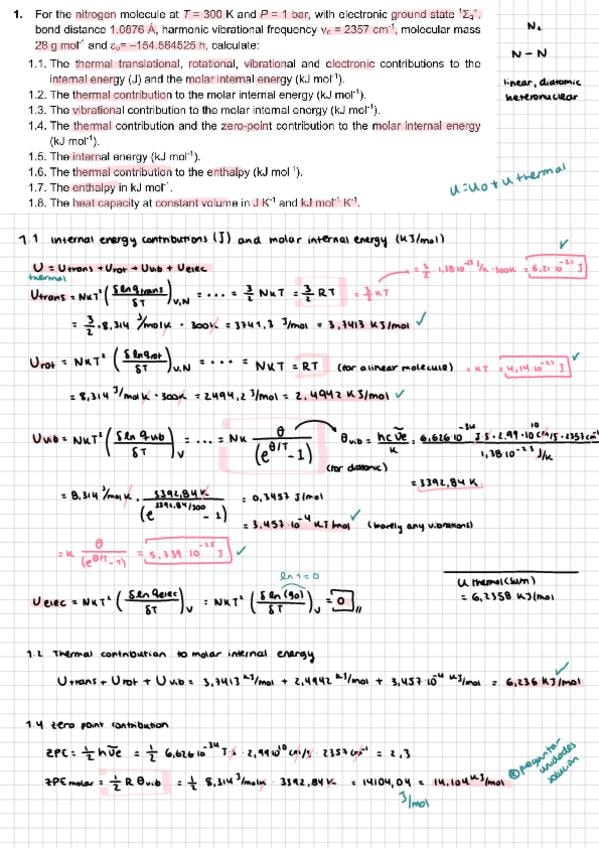 1. For the nitrogen molecule at T = 300 K and P = 1 bar, with electronic ground state ¹Σg⁺,
bond distance 1.0876 Å, harmonic vibrational frequency νe = 2357 cm⁻¹, molecular mass
28 g mol⁻¹ and ε₀= −154.564525 h, calculate:
1.1. The thermal translational, rotational, vibrational and electronic contributions to the
internal energy (J) and the molar internal energy (kJ mol⁻¹).
1.2. The thermal contribution to the molar internal energy (kJ mol⁻¹).
1.3. The vibrational contribution to the molar internal energy (kJ mol⁻¹).
1.4. The thermal contribution and the zero-point contribution to the molar internal energy
(kJ mol⁻¹).
1.5. The internal energy (kJ mol⁻¹).
1.6. The thermal contribution to the enthalpy (kJ mol⁻¹).
1.7. The enthalpy in kJ mol⁻¹.
1.8. The heat capacity at constant volume in J K⁻¹ and kJ mol⁻¹ K⁻¹.
N₂
N – N
linear, diatomic
heteronuclear
U = U0 + U thermal
1.1 internal energy contributions (J) and molar internal energy (KJ/mol)
U = Utrans + Urot + Uvib + Uelec
thermal
Utrans = NKT² (δ ln qtrans / δT)V,N = ... = 3/2 NKT = 3/2 RT = 3/2 KT = 3/2 1,38·10⁻²³ J/K · 300K = 6,21·10⁻²¹ J ✓
= 3/2 · 8,314 J/molK · 300K = 3741,3 J/mol = 3,7413 KJ/mol ✓
Urot = NKT² (δ ln qrot / δT)V,N = ... = NKT = RT (for a linear molecule) = KT = 4,14·10⁻²¹ J ✓
= 8,314 J/molK · 300K = 2494,2 J/mol = 2,4942 KJ/mol ✓
Uvib = NKT² (δ ln qvib / δT)V = ... = NK θ / (e^θ/T − 1) (for diatomic) θvib = hcν̃e / K = 6,626·10⁻³⁴ J·s · 2,99·10¹⁰ cm/s · 2357cm⁻¹ / 1,38·10⁻²³ J/K
= 3392,84 K
= 8,314 J/molK · 3392,84 K / (e^3392,84/300 − 1) = 0,3457 J/mol
= 3,457·10⁻⁴ KJ/mol ✓ (barely any vibrations)
= K θ / (e^θ/T − 1) = 5,739·10⁻²⁵ J ✓
ln 1 = 0
Uelec = NKT² (δ ln qelec / δT)V = NKT² (δ ln (g0) / δT)V = 0 //
U thermal (sum)
= 6,2358 KJ/mol
1.2 Thermal contribution to molar internal energy
Utrans + Urot + Uvib = 3,7413 KJ/mol + 2,4942 KJ/mol + 3,457·10⁻⁴ KJ/mol = 6,236 KJ/mol ✓
1.4 zero point contribution
ZPC = 1/2 hν̃e = 1/2 6,626·10⁻³⁴ J·s · 2,99·10¹⁰ cm/s · 2357cm⁻¹ = 2,3
ZPE molar = 1/2 R θvib = 1/2 8,314 J/molK · 3392,84 K = 14104,04 J/mol = 14,104 KJ/mol
preguntar
unidades
solucion